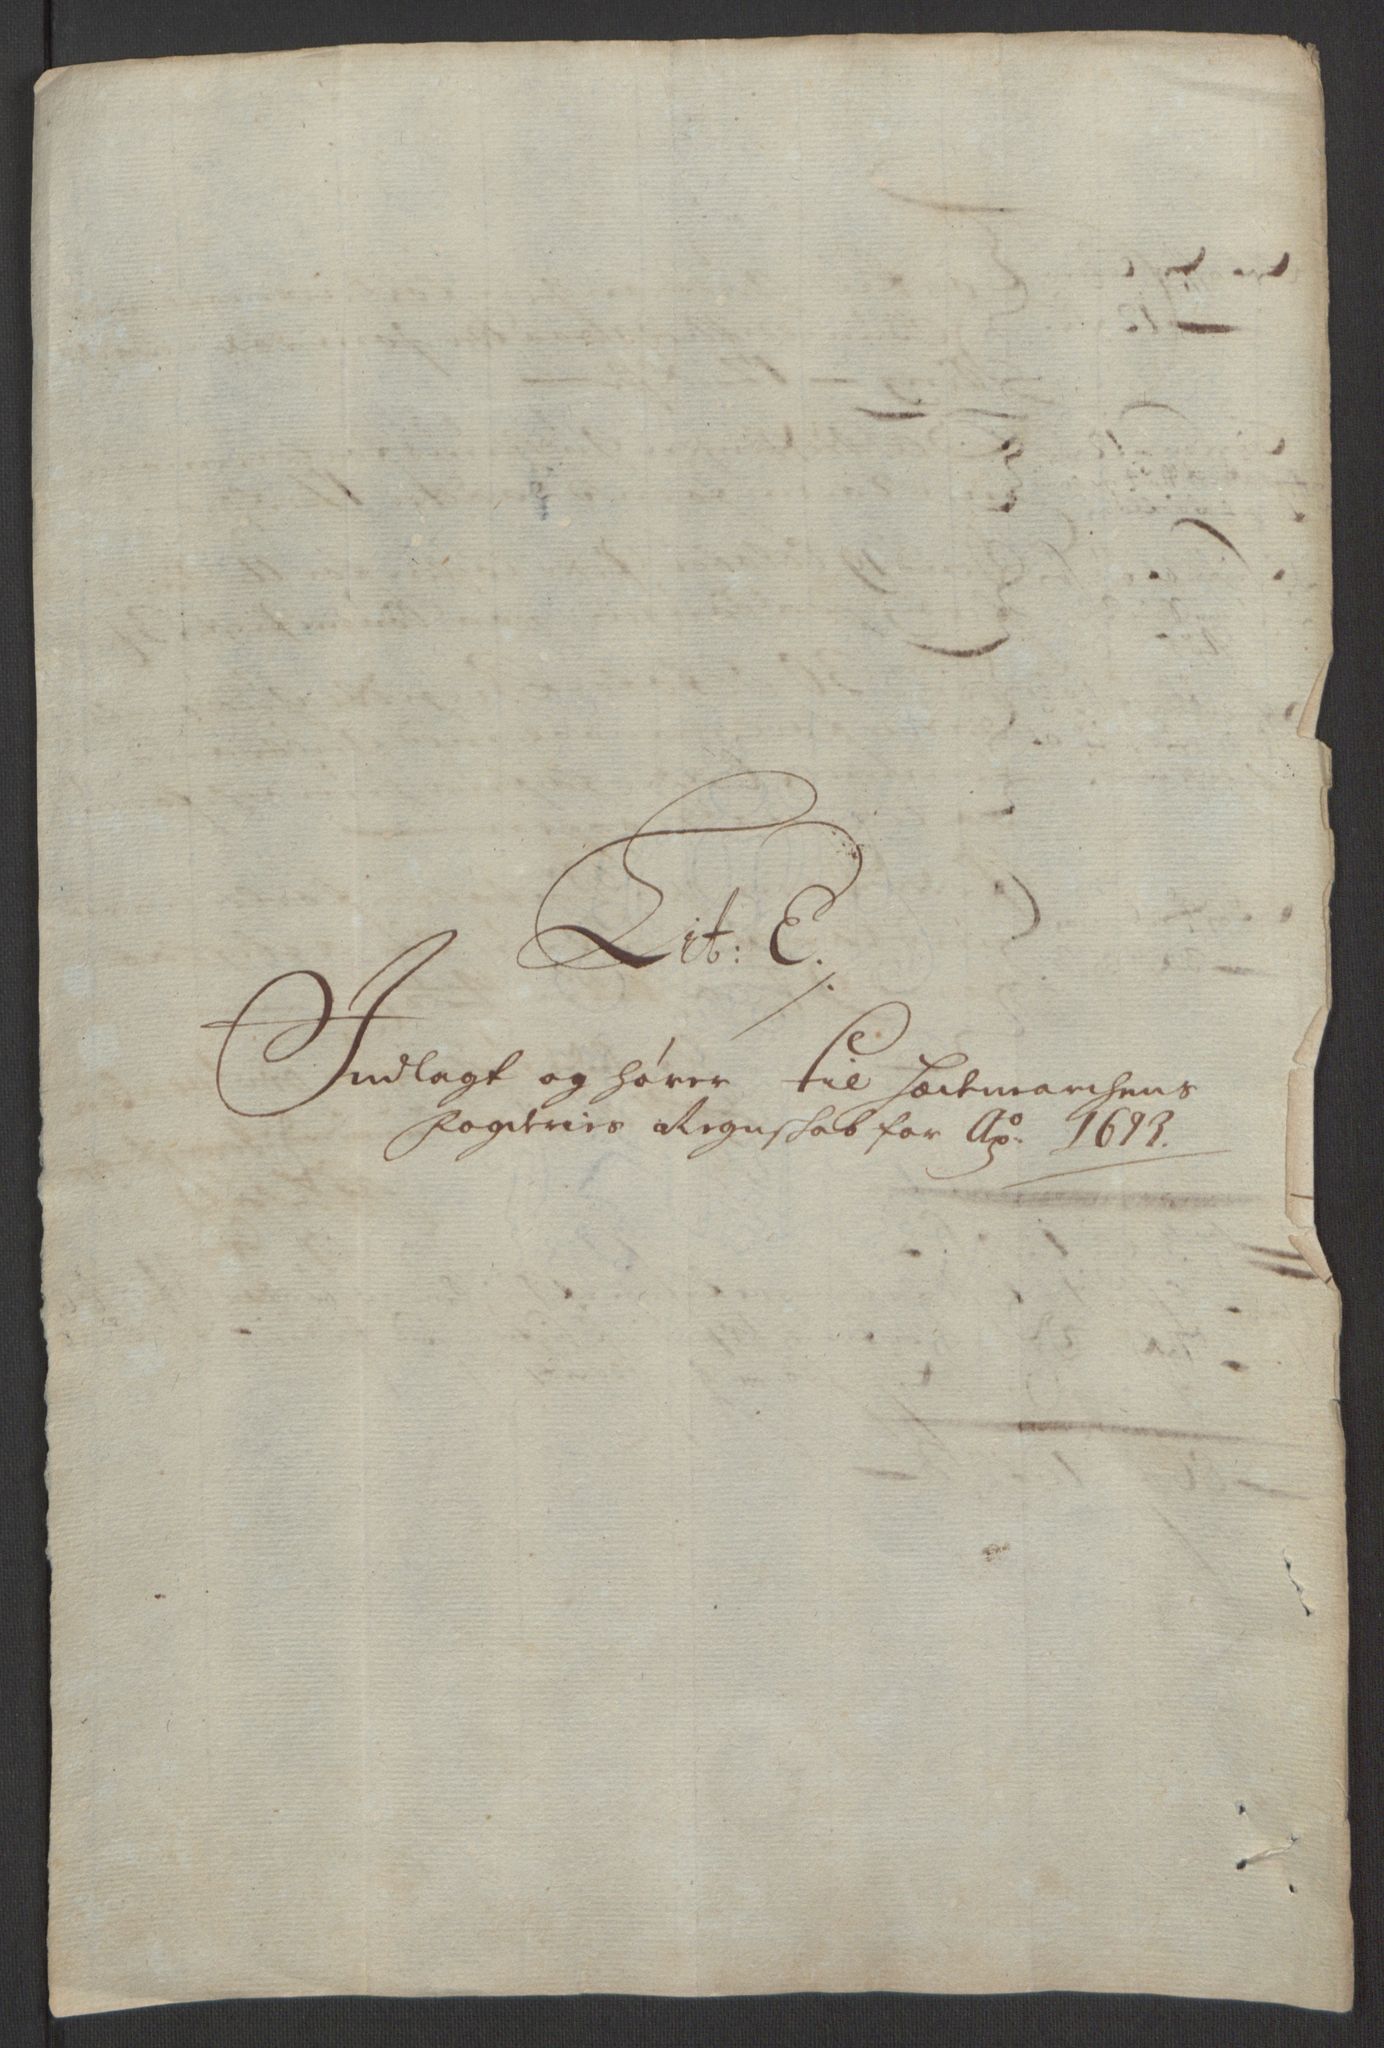 Lit: E.
Indlagt og hører til Hedemarchens
fogderies Regnskab for Ao. 1693.